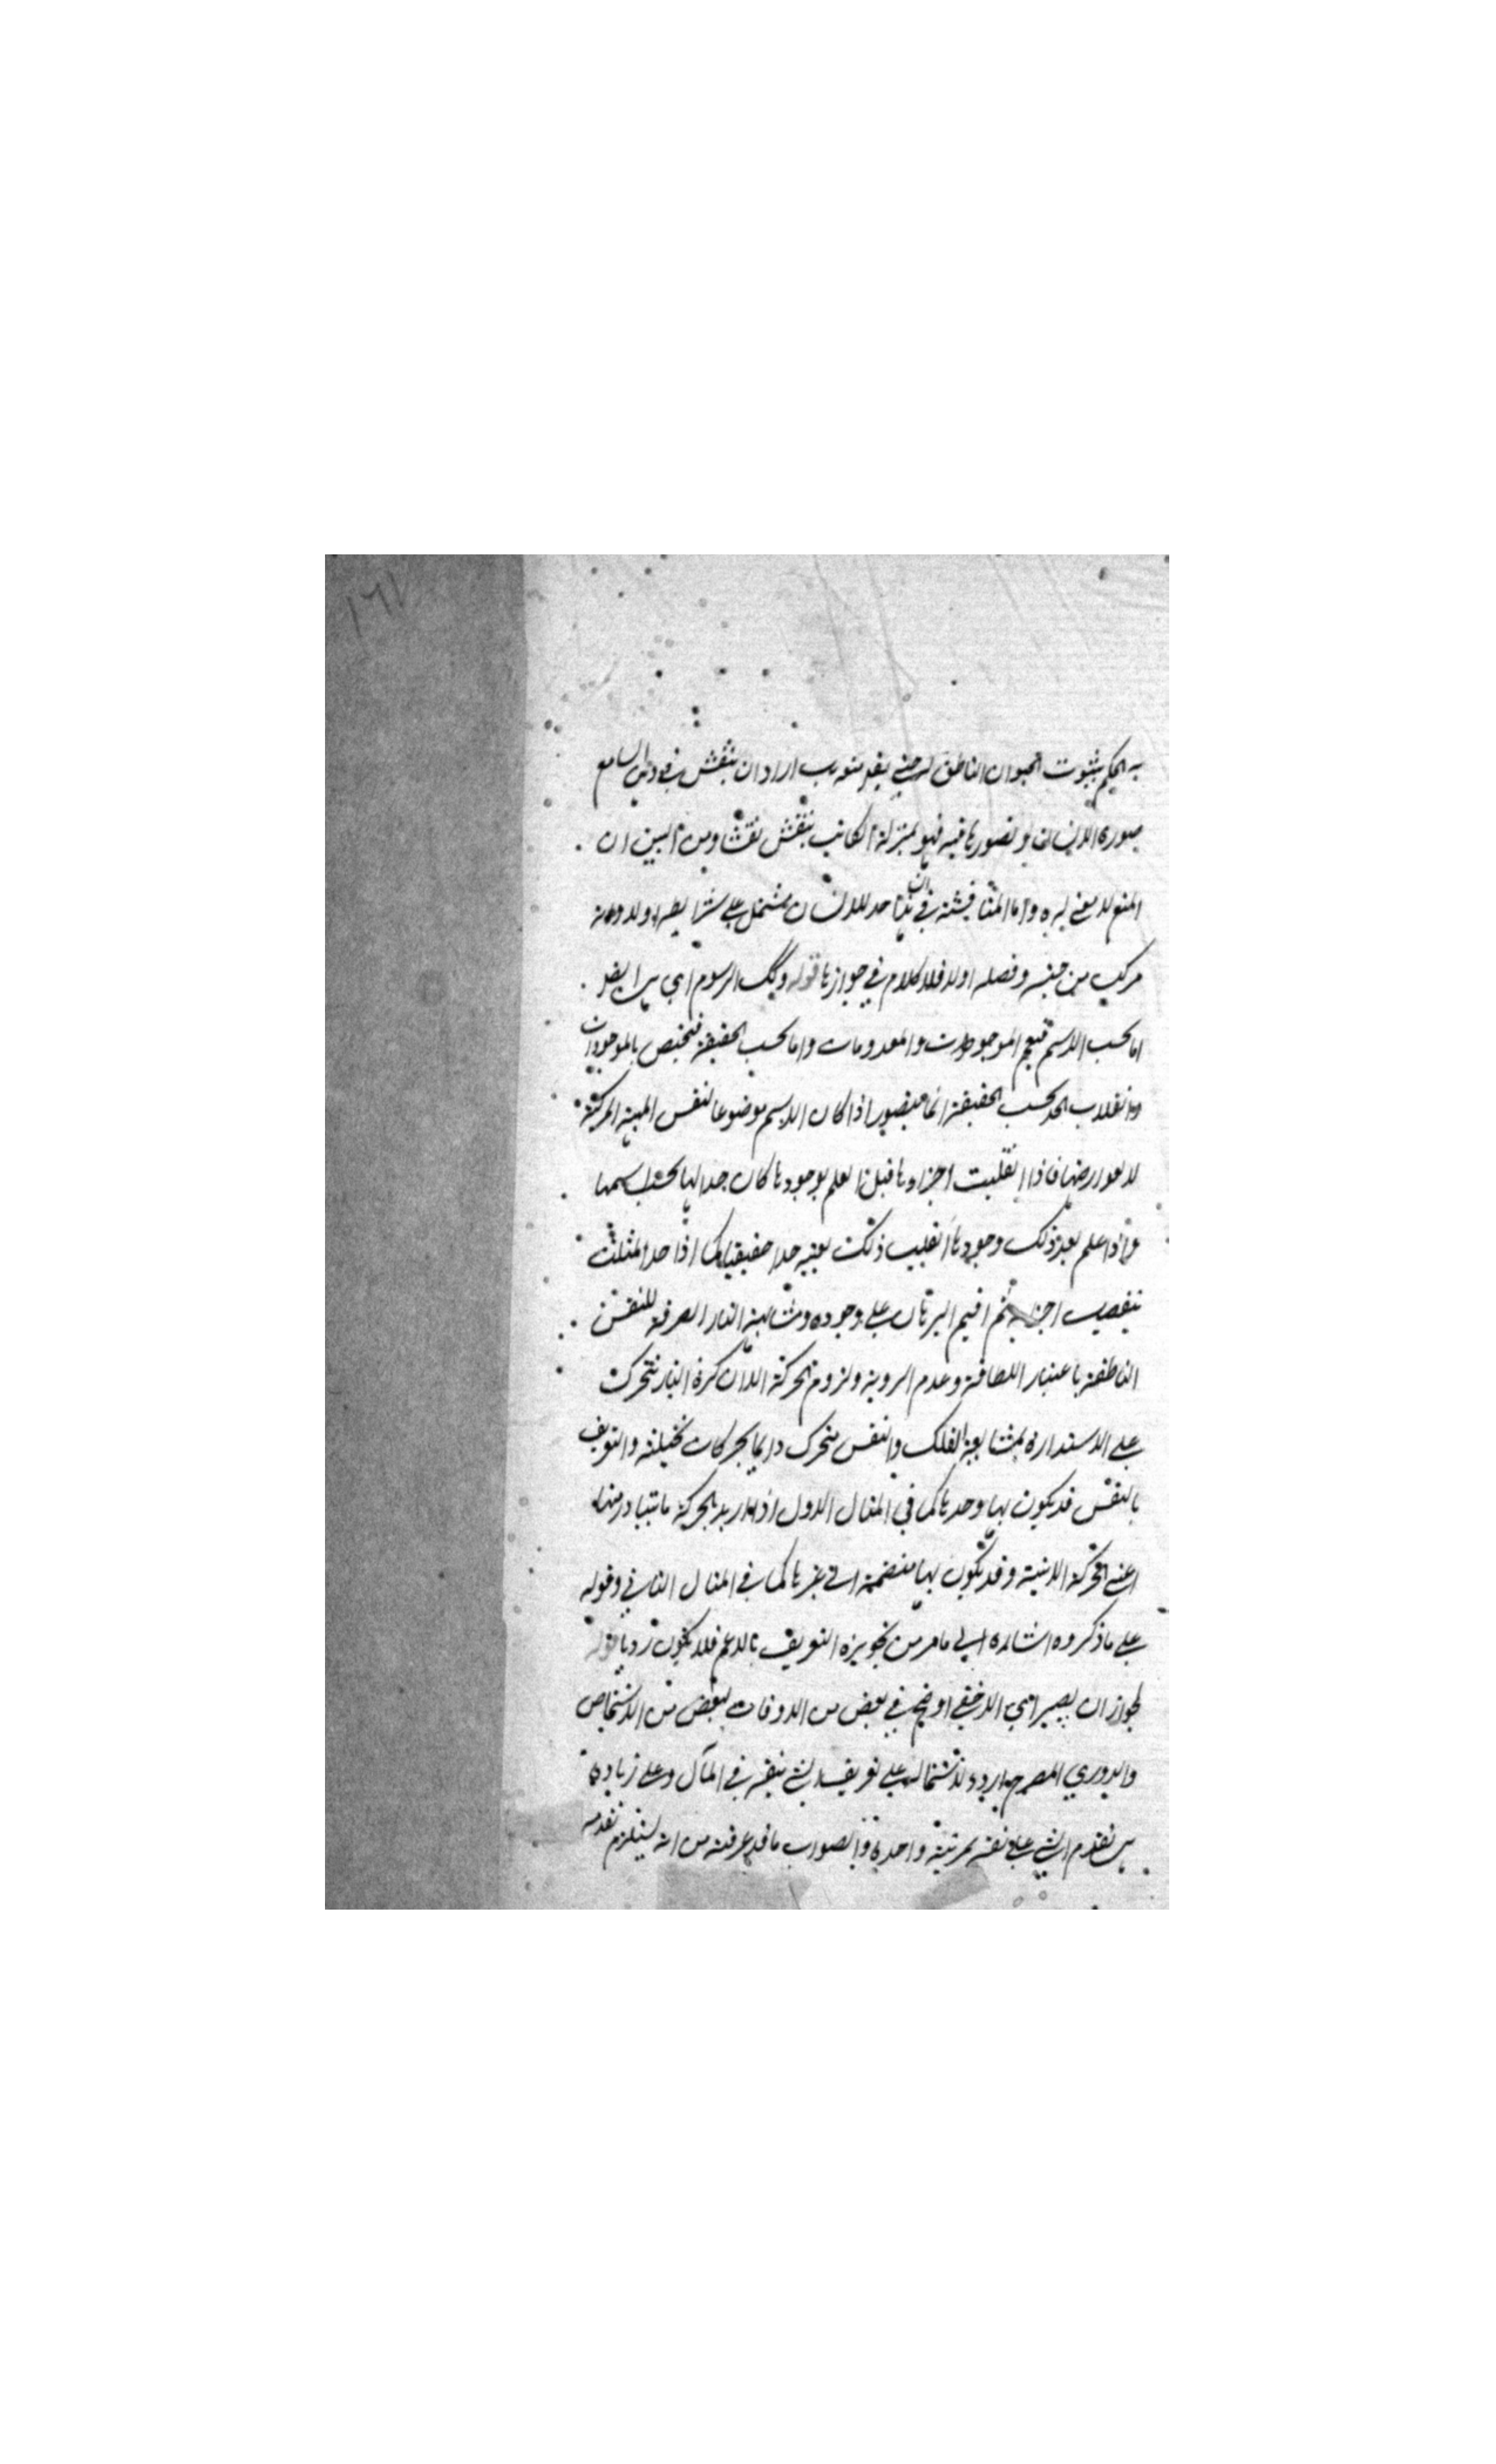 ١٦٧
به الحكم بثبوت الحيوان الناطق له حتى يقع منه بل اراد ان ينقش في ذهن السامع
صورة الانسان و تصورها فيه فهو بمنزلة الكاتب ينقش نقشا ومن البين ان
المنع لا معنى له واما المناقشة في ان هذا حد للانسان مشتمل على شرايطه اولا وانه
مركب من جنسه وفصله اولا فلا كلام في جوازها قوله وتلك الرسوم اي
اما بحسب الاسم فيعم الموجودات والمعدومات واما بحسب الحقيقة فتختص بالموجودات
وانقلاب الحد بحسب الحقيقة انما يتصور اذا كان الاسم موضوعا لنفس المهية المركبة
لا لعوارضها فاذا انقلبت اجزاوها قبل العلم بوجودها كان حدا لها بحسب اسمها
واذا علم بعد ذلك وجودها انقلب ذلك بعينه حدا حقيقيا كما اذا حد المثلث
بتفصيل اجزائه ثم اقيم البرهان على وجوده ومشابهة النار الصرفة للنفس
الناطقة باعتبار اللطافة وعدم الروية ولزوم الحركة الا ان كرة النار تتحرك
على الاستدارة بمشايعة الفلك والنفس متحرك دايما بحركات تخيلية والتعريف
بالنفس قد يكون بها وحدها كما في المثال الاول اذا اريد بالحركة ما يتبادر منها
اعني الحركة الاينية وقد يكون بها منضمة الى غيرها كما في المثال الثاني وقوله
على ما ذكروه اشارة الى ما مر من تجويزه التعريف بالاعم فلا يكون رديا قوله
لجواز ان يصير اي الاخفى اوضح في بعض من الاوقات لبعض من الاشخاص
والدوري المصرح اردء لاشتماله على تعريف الشي بنفسه في المآل وعلى زيادة
من تقدم الشي على نفسه بمرتبة واحدة والصواب ما قد عرفته من انه يستلزم تقدمه